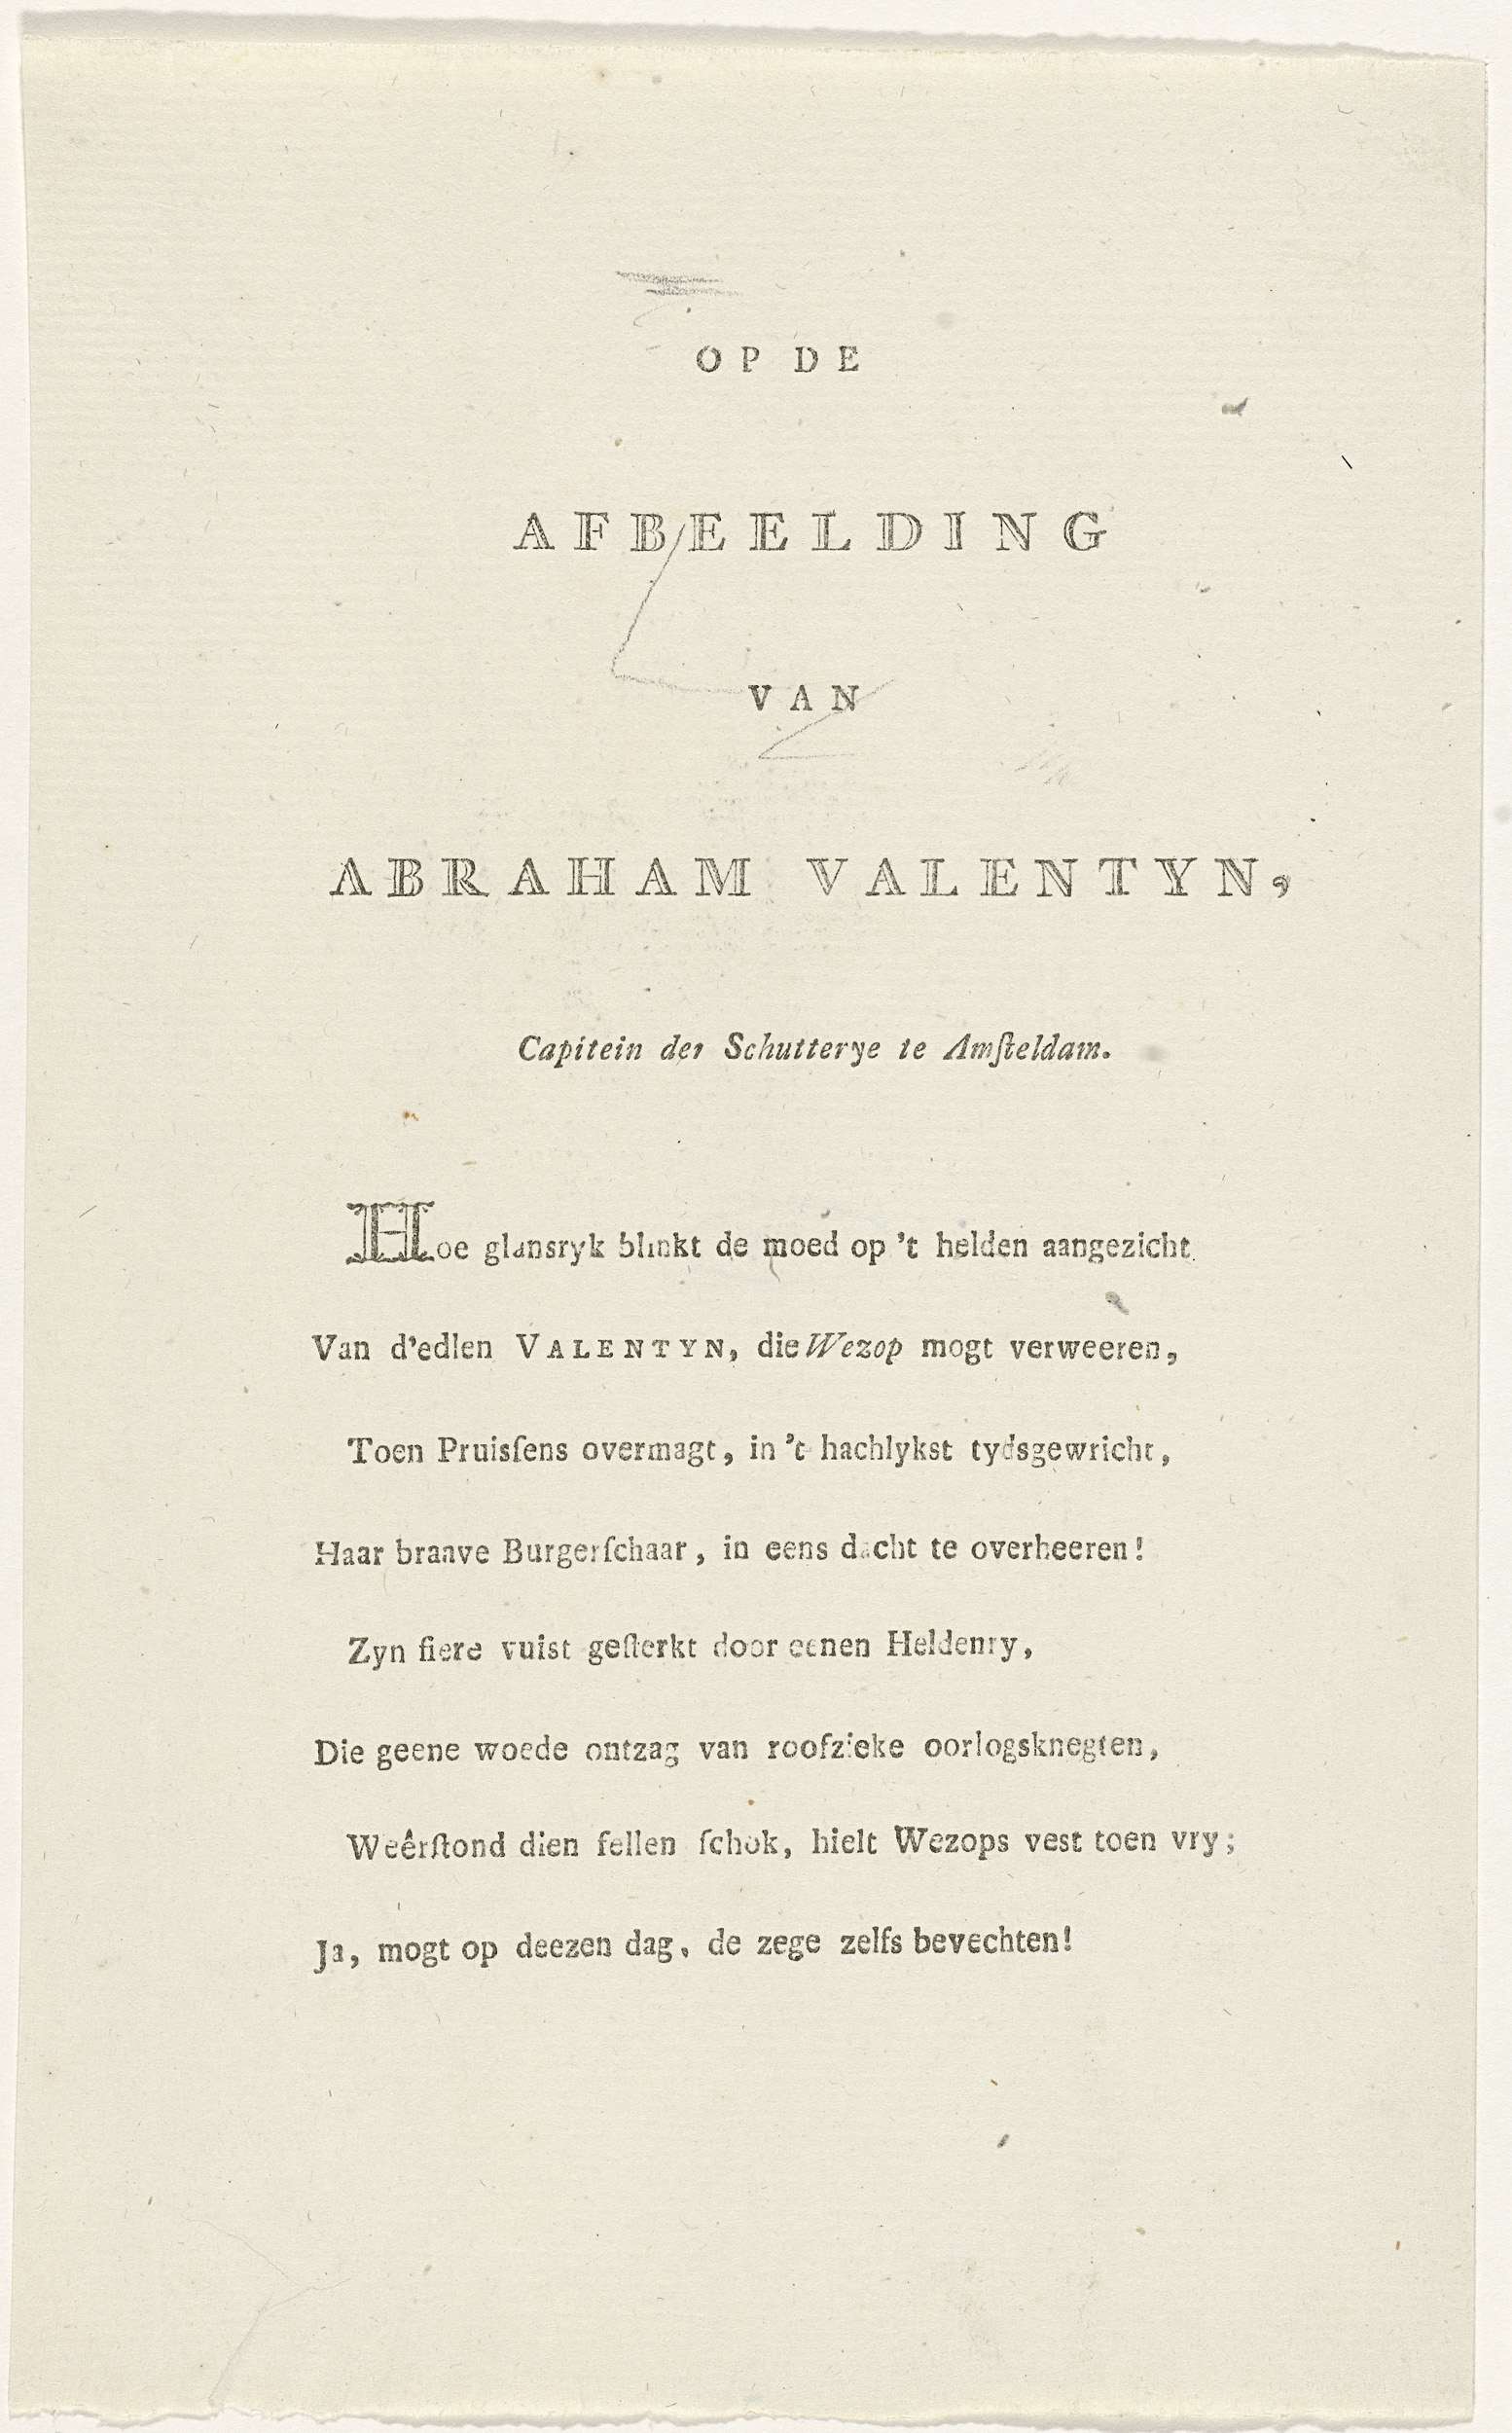 OP DE
AFBEELDING
VAN
ABRAHAM VALENTYN,
Capitein der Schutterye te Amſteldam.
Hoe glansryk blinkt de moed op 't helden aangezicht
Van d'edlen VALENTYN, die Wezop mogt verweeren,
Toen Pruisſens overmagt, in 't hachlykst tydsgewricht,
Haar braave Burgerſchaar, in eens dacht te overheeren!
Zyn fiere vuist geſterkt door eenen Heldenry,
Die geene woede ontzag van roofzieke oorlogsknegten,
Weêrſtond dien fellen ſchok, hielt Wezops vest toen vry;
Ja, mogt op deezen dag, de zege zelfs bevechten!